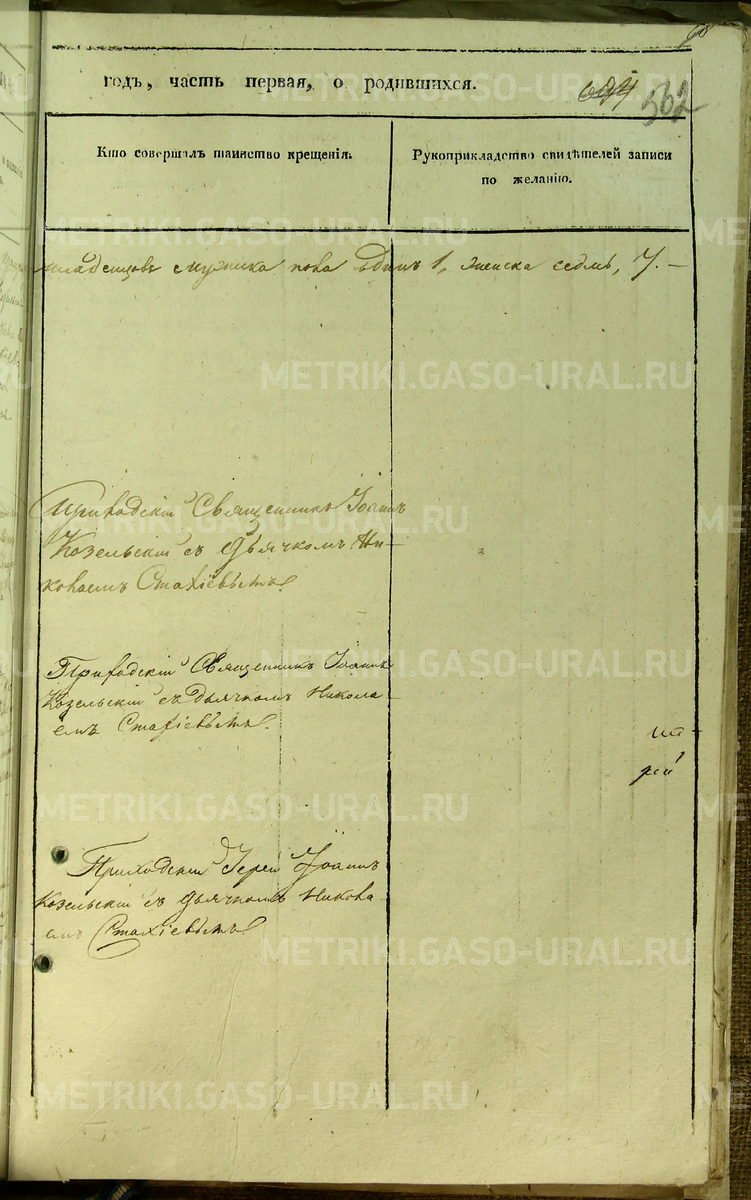 годъ, часть первая, о родившихся.
694 562
Кто совершалъ таинство крещенія.
Рукоприкладство свидѣтелей записи
по желанію.
младенцовъ мужска пола одинъ 1, женска седмь, 7. —
METRIKI.GASO-URAL.RU
Приходскій Священникъ Іоаннъ
Козельскій съ дьячкомъ Ни-
колаемъ Стахіевымъ.
Приходскій Священникъ Іоаннъ
Козельскій съ дьячкомъ Никола-
емъ Стахіевымъ.
Приходскій Іерей Іоаннъ
Козельскій съ дьячкомъ Никола-
емъ Стахіевымъ.